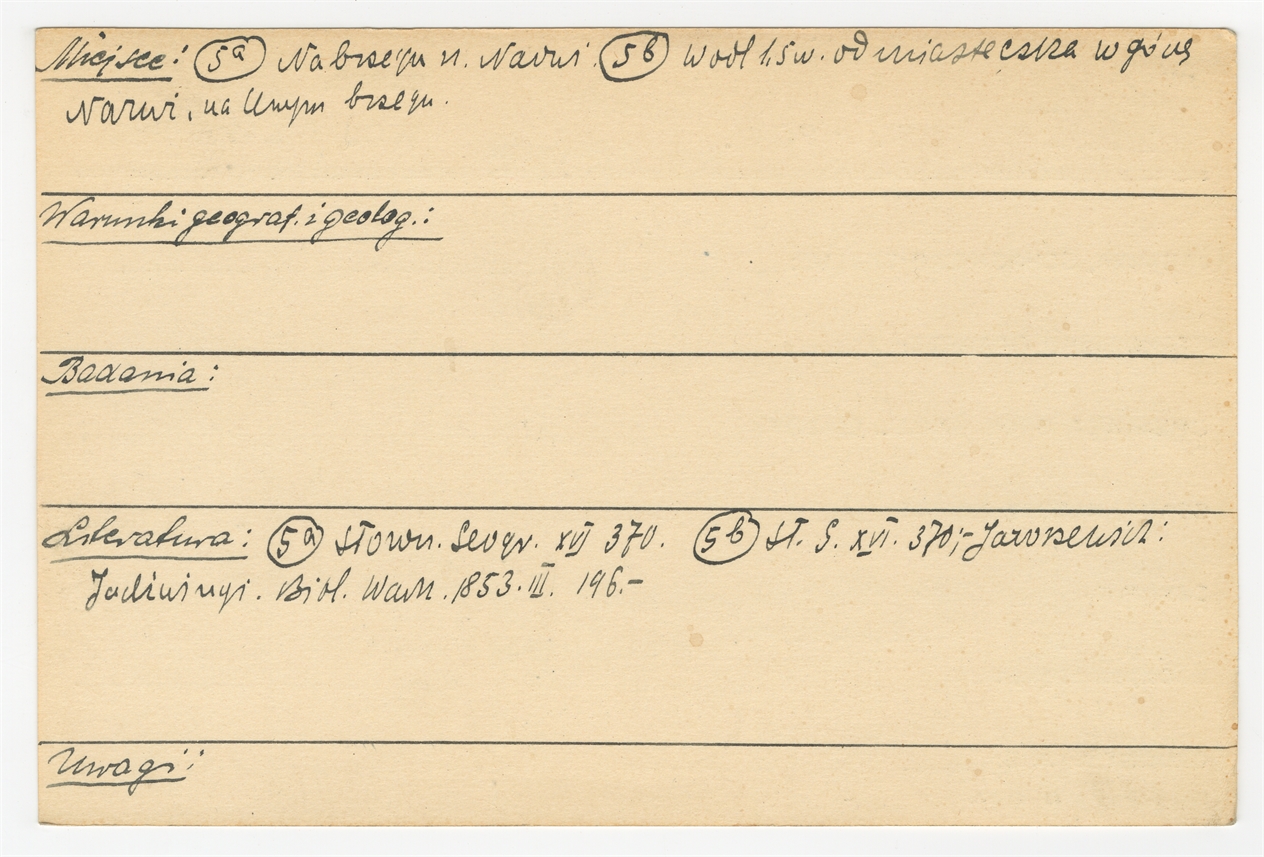 Miejsce: 5a Na brzegu rz. Narwi 5b W odl. 1,5 w. od miasteczka w górę
Narwi, na lewym brzegu.
Warunki geograf. i geolog.:
Badania:
Literatura: 5a Słown. Geogr. XVI 370. 5b Sł. G. XVI. 370;- Jaroszewicz:
Jadźwingi. Bibl. Warsz. 1853. III. 196.-
Uwagi: